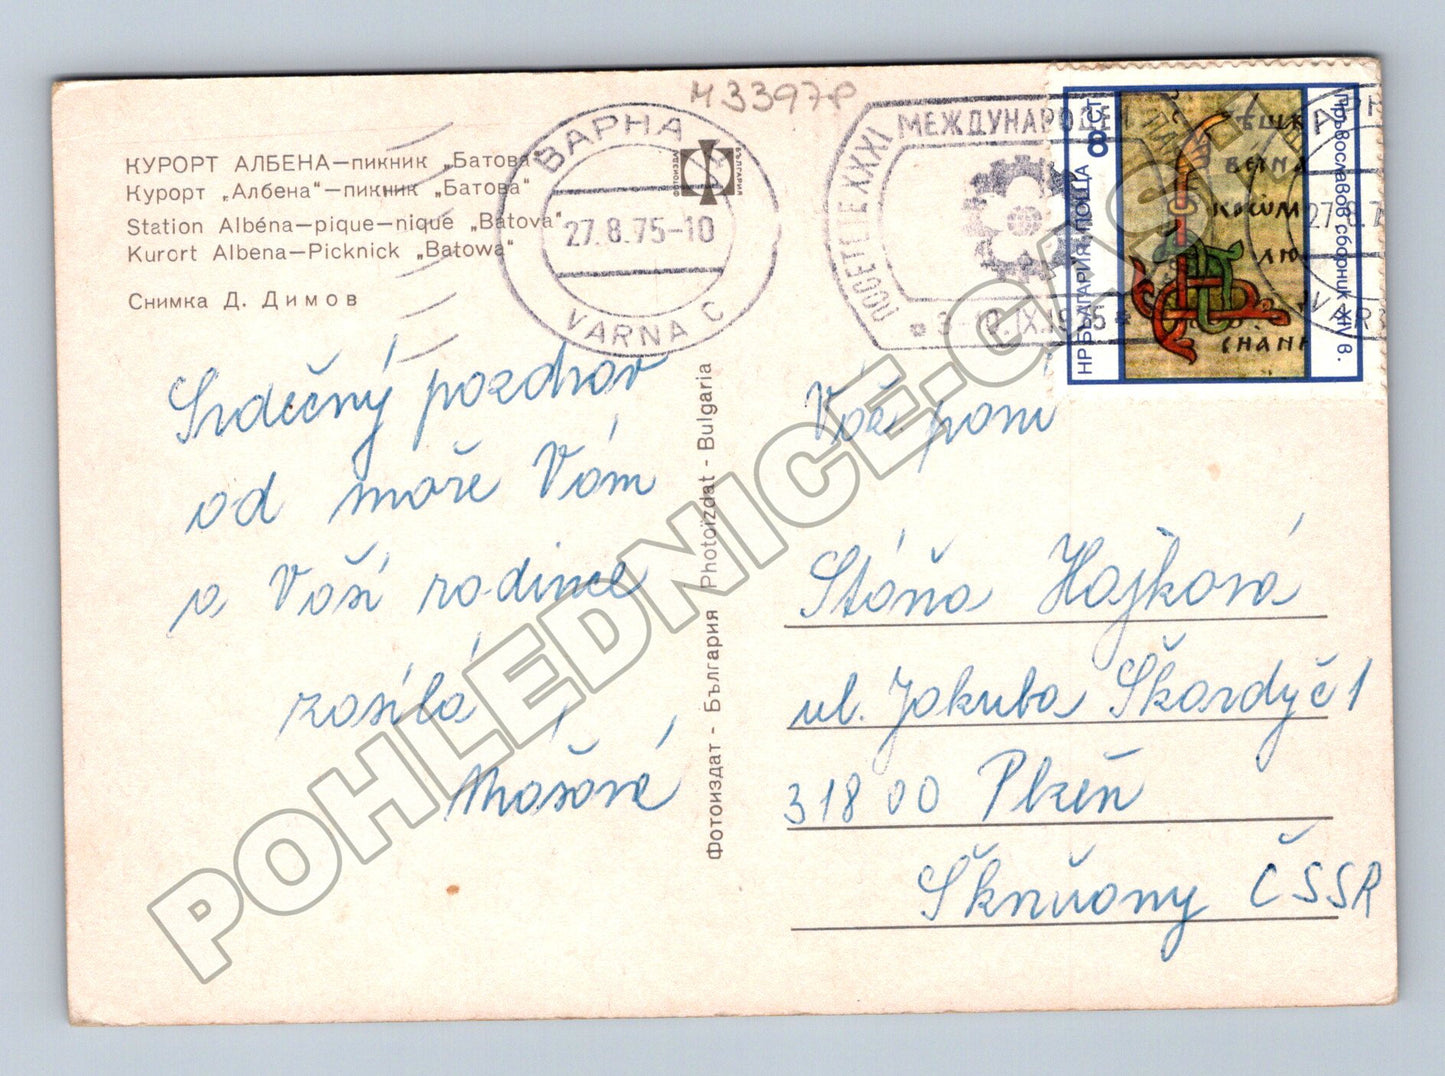 М3397Р
КУРОРТ АЛБЕНА—пикник „Батова“
Курорт „Албена“—пикник „Батова“
Station Albéna—pique-nique „Batova“
Kurort Albena—Picknick „Batowa“
Снимка Д. Димов
ВАРНА
27.8.75-10
VARNA C
ПОСЕТЕТЕ XXXI МЕЖДУНАРОДЕН
3-12.IX.1975
8 СТ
НР БЪЛГАРИЯ, ПОЩА
Първославов сборник XIV в.
Srdečný pozdrav
od moře Vám
a Vaší rodince
zasílá
Фотоиздат - България Photoizdat - Bulgaria
Váž. paní
Stáňa Hajková
ul. Jakuba Škardy č 1
318 00 Plzeň
Škvrňany ČSSR
POHLEDNICE-CAS